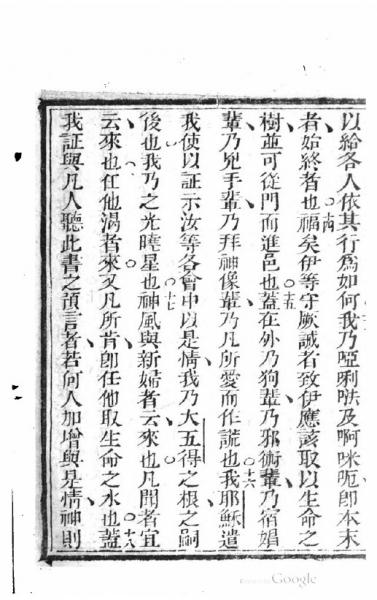 以給各人依其行爲如何我乃啞唎𠵽及啊咪呃卽本末
者始終者也福矣伊等守厥誡者致伊應該取以生命之
樹並可從門而進邑也蓋在外乃狗輩乃邪術輩乃宿娼
輩乃兇手輩乃拜神像輩乃凡所愛而作謊也我耶穌遣
我使以証示汝等各會中以是情我乃大五得之根之嗣
後也我乃之光曉星也神風與新婦者云來也凡聞者宜
云來也任他渴者來又凡所肯卽任他取生命之水也蓋
我証與凡人聽此書之預言者若何人加增與是情神則
十四
十五
十六
十七
十八
Google